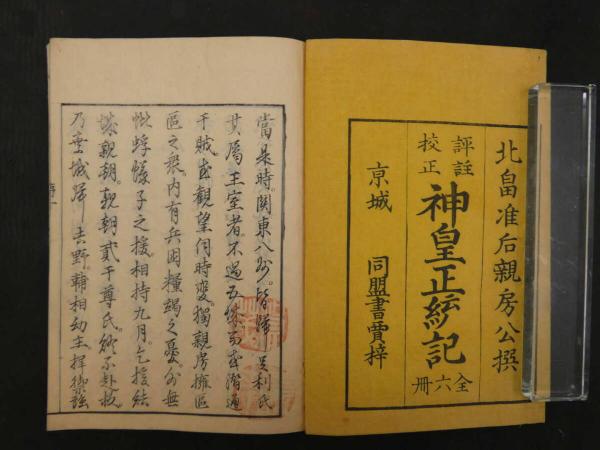 北畠准后親房公撰
評註
校正
神皇正統記
全六冊
京城 同盟書賈梓
當是時。関東八州。皆歸足利氏
其屬王室者。不過五條而或潛通
于賊。或觀望伺時變。獨親房擁區
區之衆。内有兵困糧竭之憂。外無
蚍蜉蟻子之援。相持九月。乞援結
城親朝。親朝貳于尊氏。終不赴救。
乃棄城歸吉野輔相幼主捍禦強